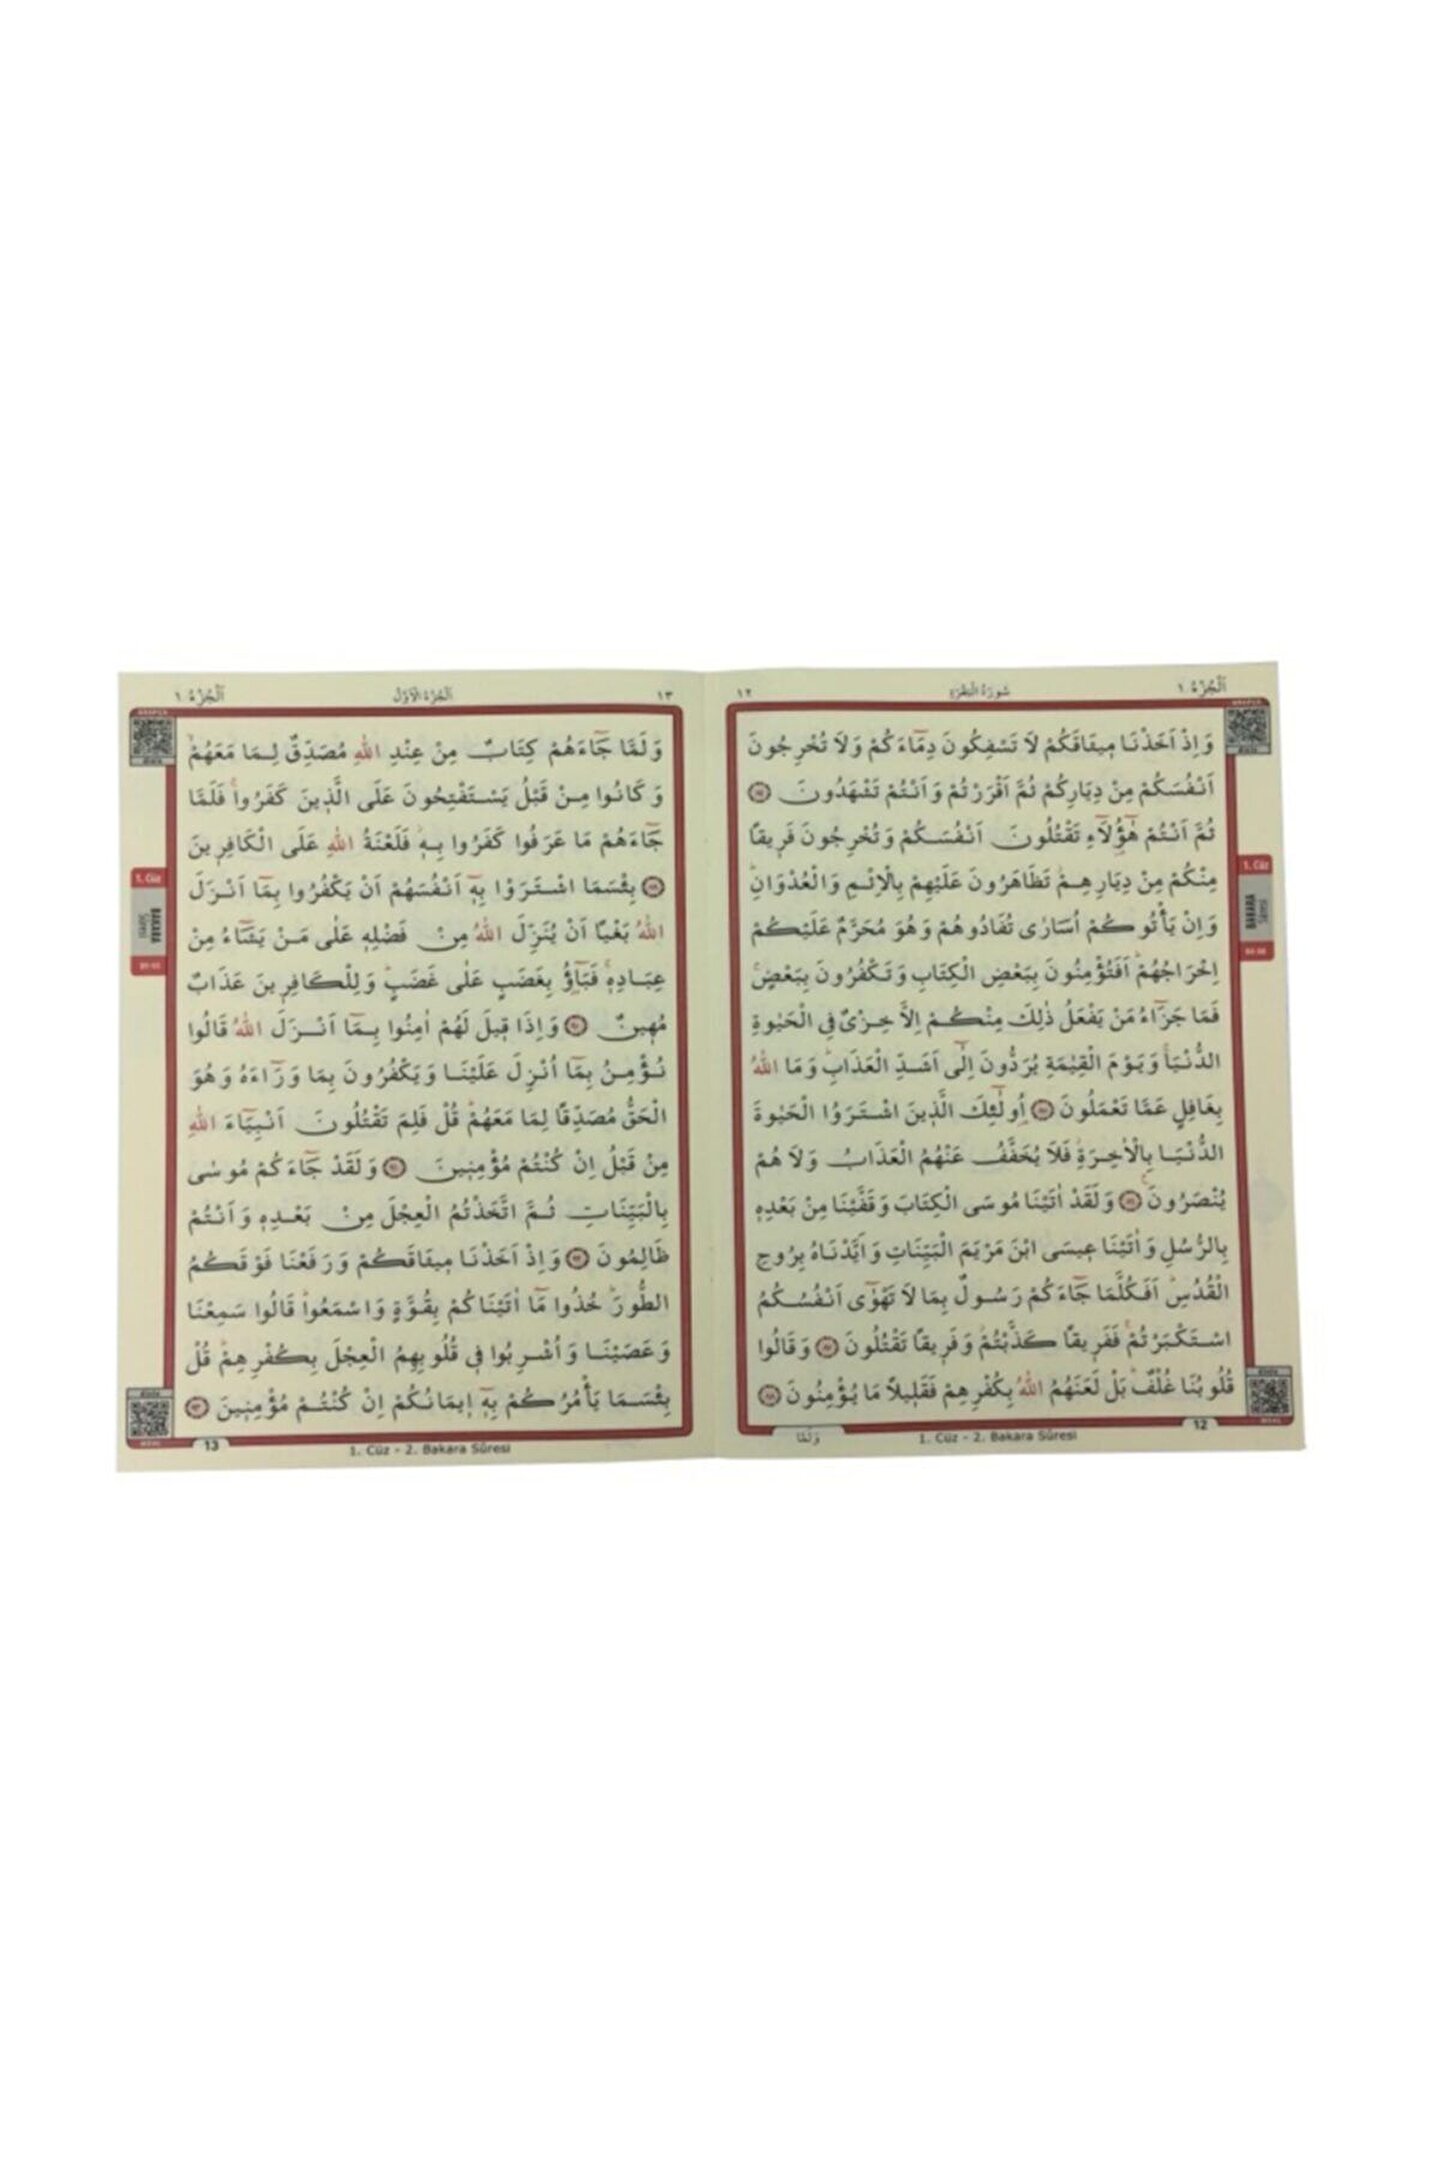 اَلْجُزْءُ ١
سُورَةُ الْبَقَرَةِ
١٢
وَاِذْ اَخَذْنَا م۪يثَاقَكُمْ لَا تَسْفِكُونَ دِمَٓاءَكُمْ وَلَا تُخْرِجُونَ
اَنْفُسَكُمْ مِنْ دِيَارِكُمْ ثُمَّ اَقْرَرْتُمْ وَاَنْتُمْ تَشْهَدُونَ ﴿٨٤﴾
ثُمَّ اَنْتُمْ هٰٓؤُ۬لَٓاءِ تَقْتُلُونَ اَنْفُسَكُمْ وَتُخْرِجُونَ فَر۪يقًا
مِنْكُمْ مِنْ دِيَارِهِمْۘ تَظَاهَرُونَ عَلَيْهِمْ بِالْاِثْمِ وَالْعُدْوَانِۜ
وَاِنْ يَأْتُوكُمْ اُسَارٰى تُفَادُوهُمْ وَهُوَ مُحَرَّمٌ عَلَيْكُمْ
اِخْرَاجُهُمْۜ اَفَتُؤْمِنُونَ بِبَعْضِ الْكِتَابِ وَتَكْفُرُونَ بِبَعْضٍۚ
فَمَا جَزَٓاءُ مَنْ يَفْعَلُ ذٰلِكَ مِنْكُمْ اِلَّا خِزْيٌ فِي الْحَيٰوةِ
الدُّنْيَاۚ وَيَوْمَ الْقِيٰمَةِ يُرَدُّونَ اِلٰٓى اَشَدِّ الْعَذَابِۜ وَمَا اللّٰهُ
بِغَافِلٍ عَمَّا تَعْمَلُونَ ﴿٨٥﴾ اُو۬لٰٓئِكَ الَّذ۪ينَ اشْتَرَوُا الْحَيٰوةَ
الدُّنْيَا بِالْاٰخِرَةِۘ فَلَا يُخَفَّفُ عَنْهُمُ الْعَذَابُ وَلَا هُمْ
يُنْصَرُونَ۟ ﴿٨٦﴾ وَلَقَدْ اٰتَيْنَا مُوسَى الْكِتَابَ وَقَفَّيْنَا مِنْ بَعْدِه۪
بِالرُّسُلِ وَاٰتَيْنَا ع۪يسَى ابْنَ مَرْيَمَ الْبَيِّنَاتِ وَاَيَّدْنَاهُ بِرُوحِ
الْقُدُسِۜ اَفَكُلَّمَا جَٓاءَكُمْ رَسُولٌ بِمَا لَا تَهْوٰٓى اَنْفُسُكُمُ
اسْتَكْبَرْتُمْۚ فَفَر۪يقًا كَذَّبْتُمْۘ وَفَر۪يقًا تَقْتُلُونَ ﴿٨٧﴾ وَقَالُوا
قُلُوبُنَا غُلْفٌۜ بَلْ لَعَنَهُمُ اللّٰهُ بِكُفْرِهِمْ فَقَل۪يلًا مَا يُؤْمِنُونَ ﴿٨٨﴾
1. Cüz
12
1. Cüz - 2. Bakara Sûresi
وَلَمَّا
١٣
اَلْجُزْءُ الْاَوَّلُ
اَلْجُزْءُ ١
وَلَمَّا جَٓاءَهُمْ كِتَابٌ مِنْ عِنْدِ اللّٰهِ مُصَدِّقٌ لِمَا مَعَهُمْۙ
وَكَانُوا مِنْ قَبْلُ يَسْتَفْتِحُونَ عَلَى الَّذ۪ينَ كَفَرُواۚ فَلَمَّا
جَٓاءَهُمْ مَا عَرَفُوا كَفَرُوا بِه۪ۘ فَلَعْنَةُ اللّٰهِ عَلَى الْكَافِر۪ينَ
﴿٨٩﴾ بِئْسَمَا اشْتَرَوْا بِه۪ٓ اَنْفُسَهُمْ اَنْ يَكْفُرُوا بِمَٓا اَنْزَلَ
اللّٰهُ بَغْيًا اَنْ يُنَزِّلَ اللّٰهُ مِنْ فَضْلِه۪ عَلٰى مَنْ يَشَٓاءُ مِنْ
عِبَادِه۪ۚ فَبَٓاؤُ۫ بِغَضَبٍ عَلٰى غَضَبٍۜ وَلِلْكَافِر۪ينَ عَذَابٌ
مُه۪ينٌ ﴿٩٠﴾ وَاِذَا ق۪يلَ لَهُمْ اٰمِنُوا بِمَٓا اَنْزَلَ اللّٰهُ قَالُوا
نُؤْمِنُ بِمَٓا اُنْزِلَ عَلَيْنَا وَيَكْفُرُونَ بِمَا وَرَٓاءَهُ وَهُوَ
الْحَقُّ مُصَدِّقًا لِمَا مَعَهُمْۜ قُلْ فَلِمَ تَقْتُلُونَ اَنْبِيَٓاءَ اللّٰهِ
مِنْ قَبْلُ اِنْ كُنْتُمْ مُؤْمِن۪ينَ ﴿٩١﴾ وَلَقَدْ جَٓاءَكُمْ مُوسٰى
بِالْبَيِّنَاتِ ثُمَّ اتَّخَذْتُمُ الْعِجْلَ مِنْ بَعْدِه۪ وَاَنْتُمْ
ظَالِمُونَ ﴿٩٢﴾ وَاِذْ اَخَذْنَا م۪يثَاقَكُمْ وَرَفَعْنَا فَوْقَكُمُ
الطُّورَۜ خُذُوا مَٓا اٰتَيْنَاكُمْ بِقُوَّةٍ وَاسْمَعُواۜ قَالُوا سَمِعْنَا
وَعَصَيْنَا وَاُشْرِبُوا ف۪ي قُلُوبِهِمُ الْعِجْلَ بِكُفْرِهِمْۜ قُلْ
بِئْسَمَا يَأْمُرُكُمْ بِه۪ٓ ا۪يمَانُكُمْ اِنْ كُنْتُمْ مُؤْمِن۪ينَ ﴿٩٣﴾
1. Cüz
BAKARA
Sûresi
13
1. Cüz - 2. Bakara Sûresi